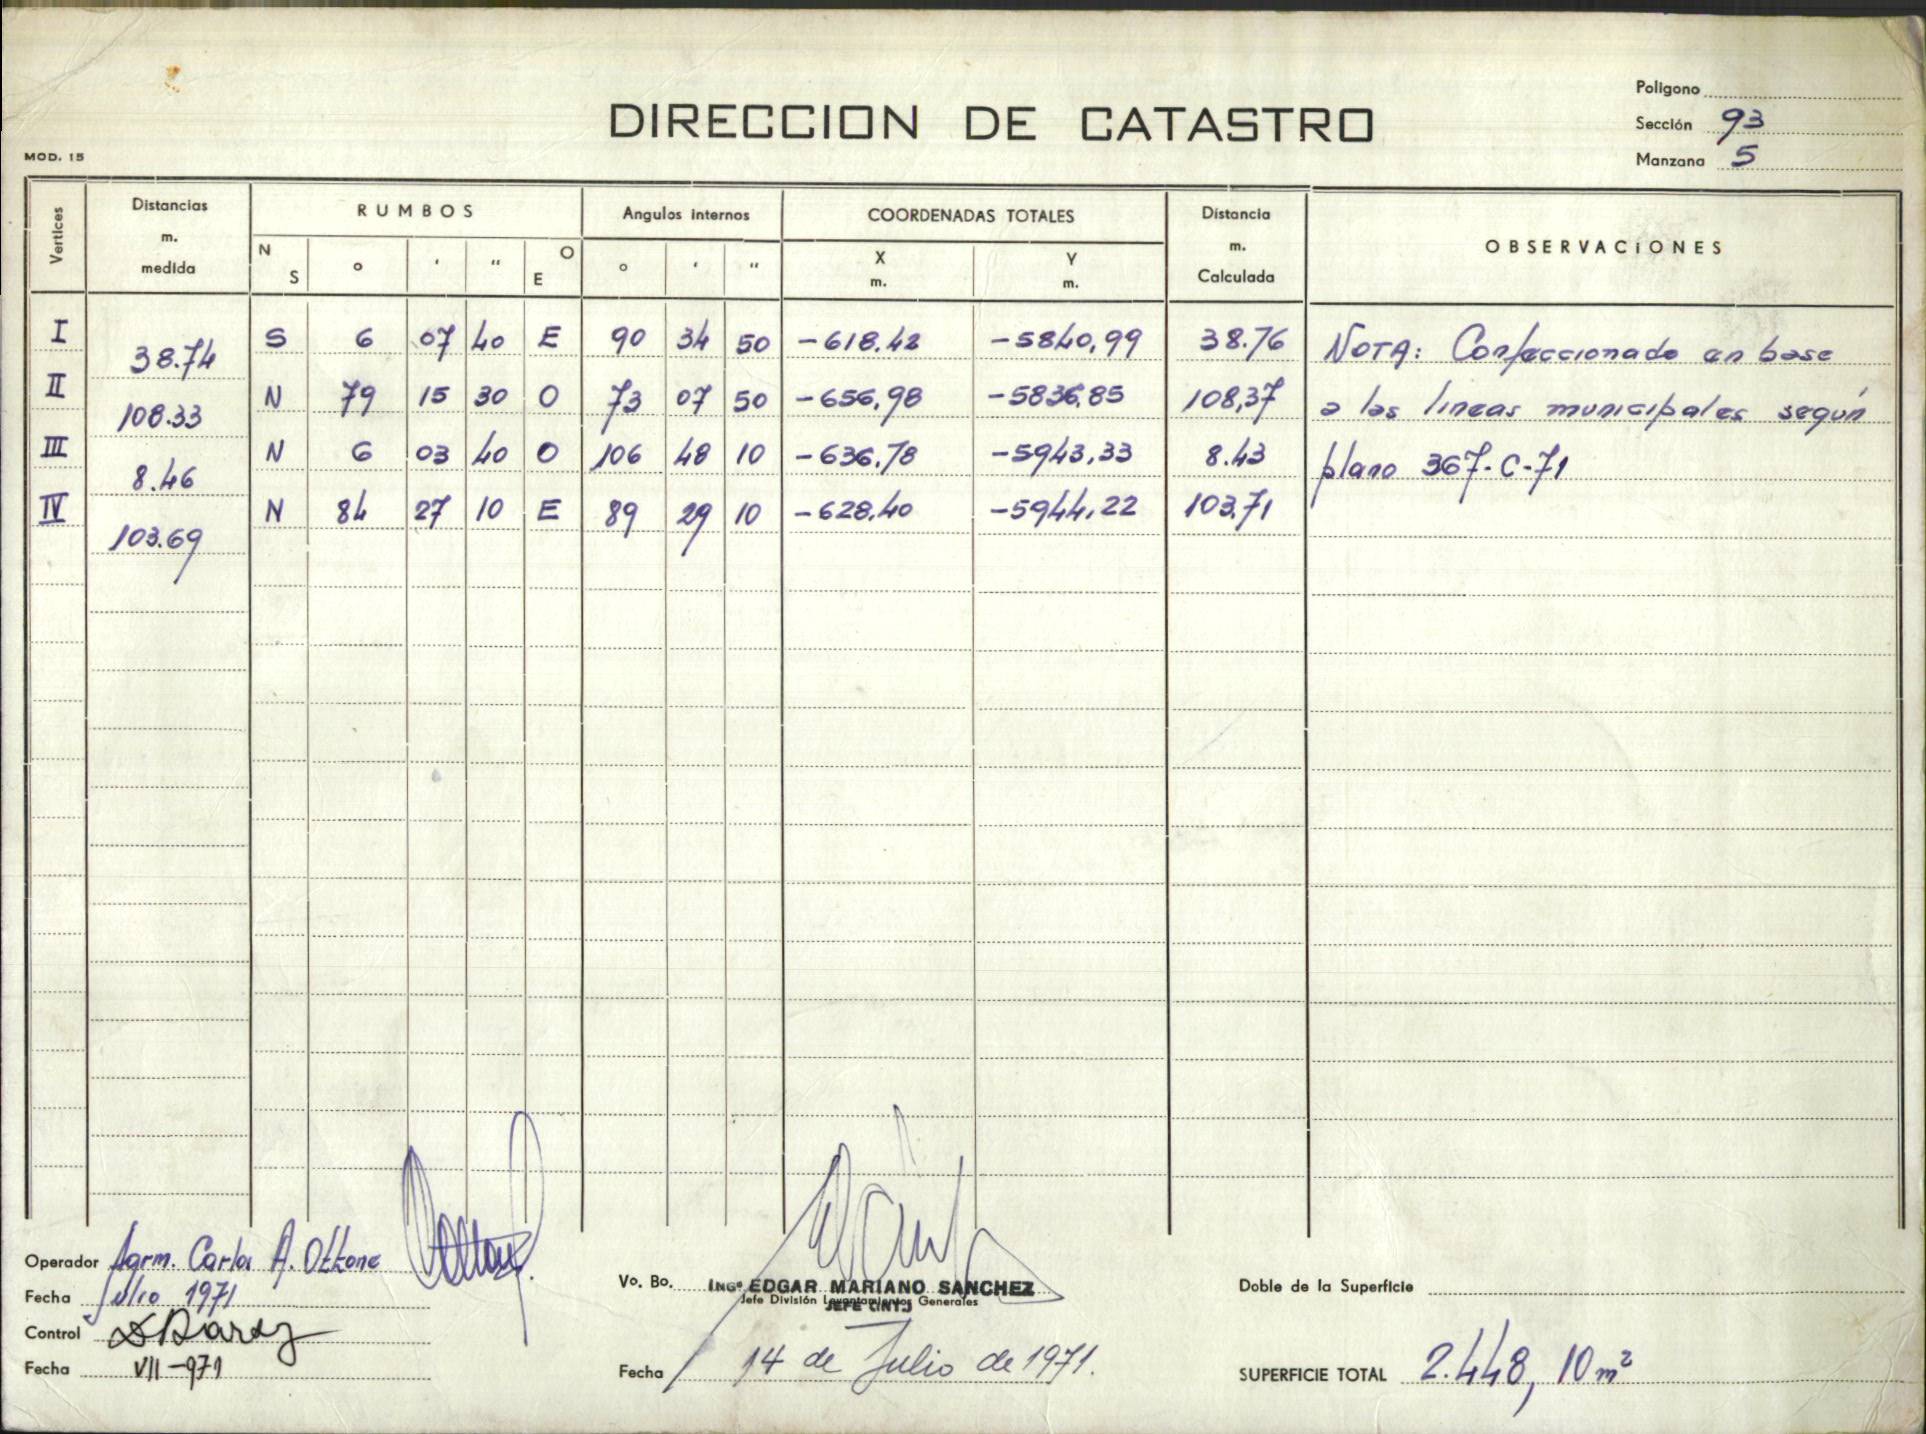 Poligono
DIRECCION DE CATASTRO
Sección 93
MOD. 15
Manzana 5
Vertices Distancias m. medida RUMBOS Angulos internos COORDENADAS TOTALES Distancia m. Calculada OBSERVACIONES
N S o ' " O E o ' " X m. Y m.
I 38.74 S 6 07 40 E 90 34 50 -618.42 -5840,99 38.76 NOTA: Confeccionado en base
II 108.33 N 79 15 30 O 73 07 50 -656,98 -5836,85 108,37 a las lineas municipales según
III 8.46 N 6 03 40 O 106 48 10 -636,78 -5943,33 8.43 plano 367-C-71
IV 103.69 N 84 27 10 E 89 29 10 -628,40 -5944,22 103,71
Operador Agrm. Carlos A. Ottone
Fecha Julio 1971
Control
Fecha VII-971
Vo. Bo. INGº EDGAR MARIANO SANCHEZ
Jefe División Levantamientos Generales
JEFE
Fecha 14 de Julio de 1971.
Doble de la Superficie
SUPERFICIE TOTAL 2.448,10 m²